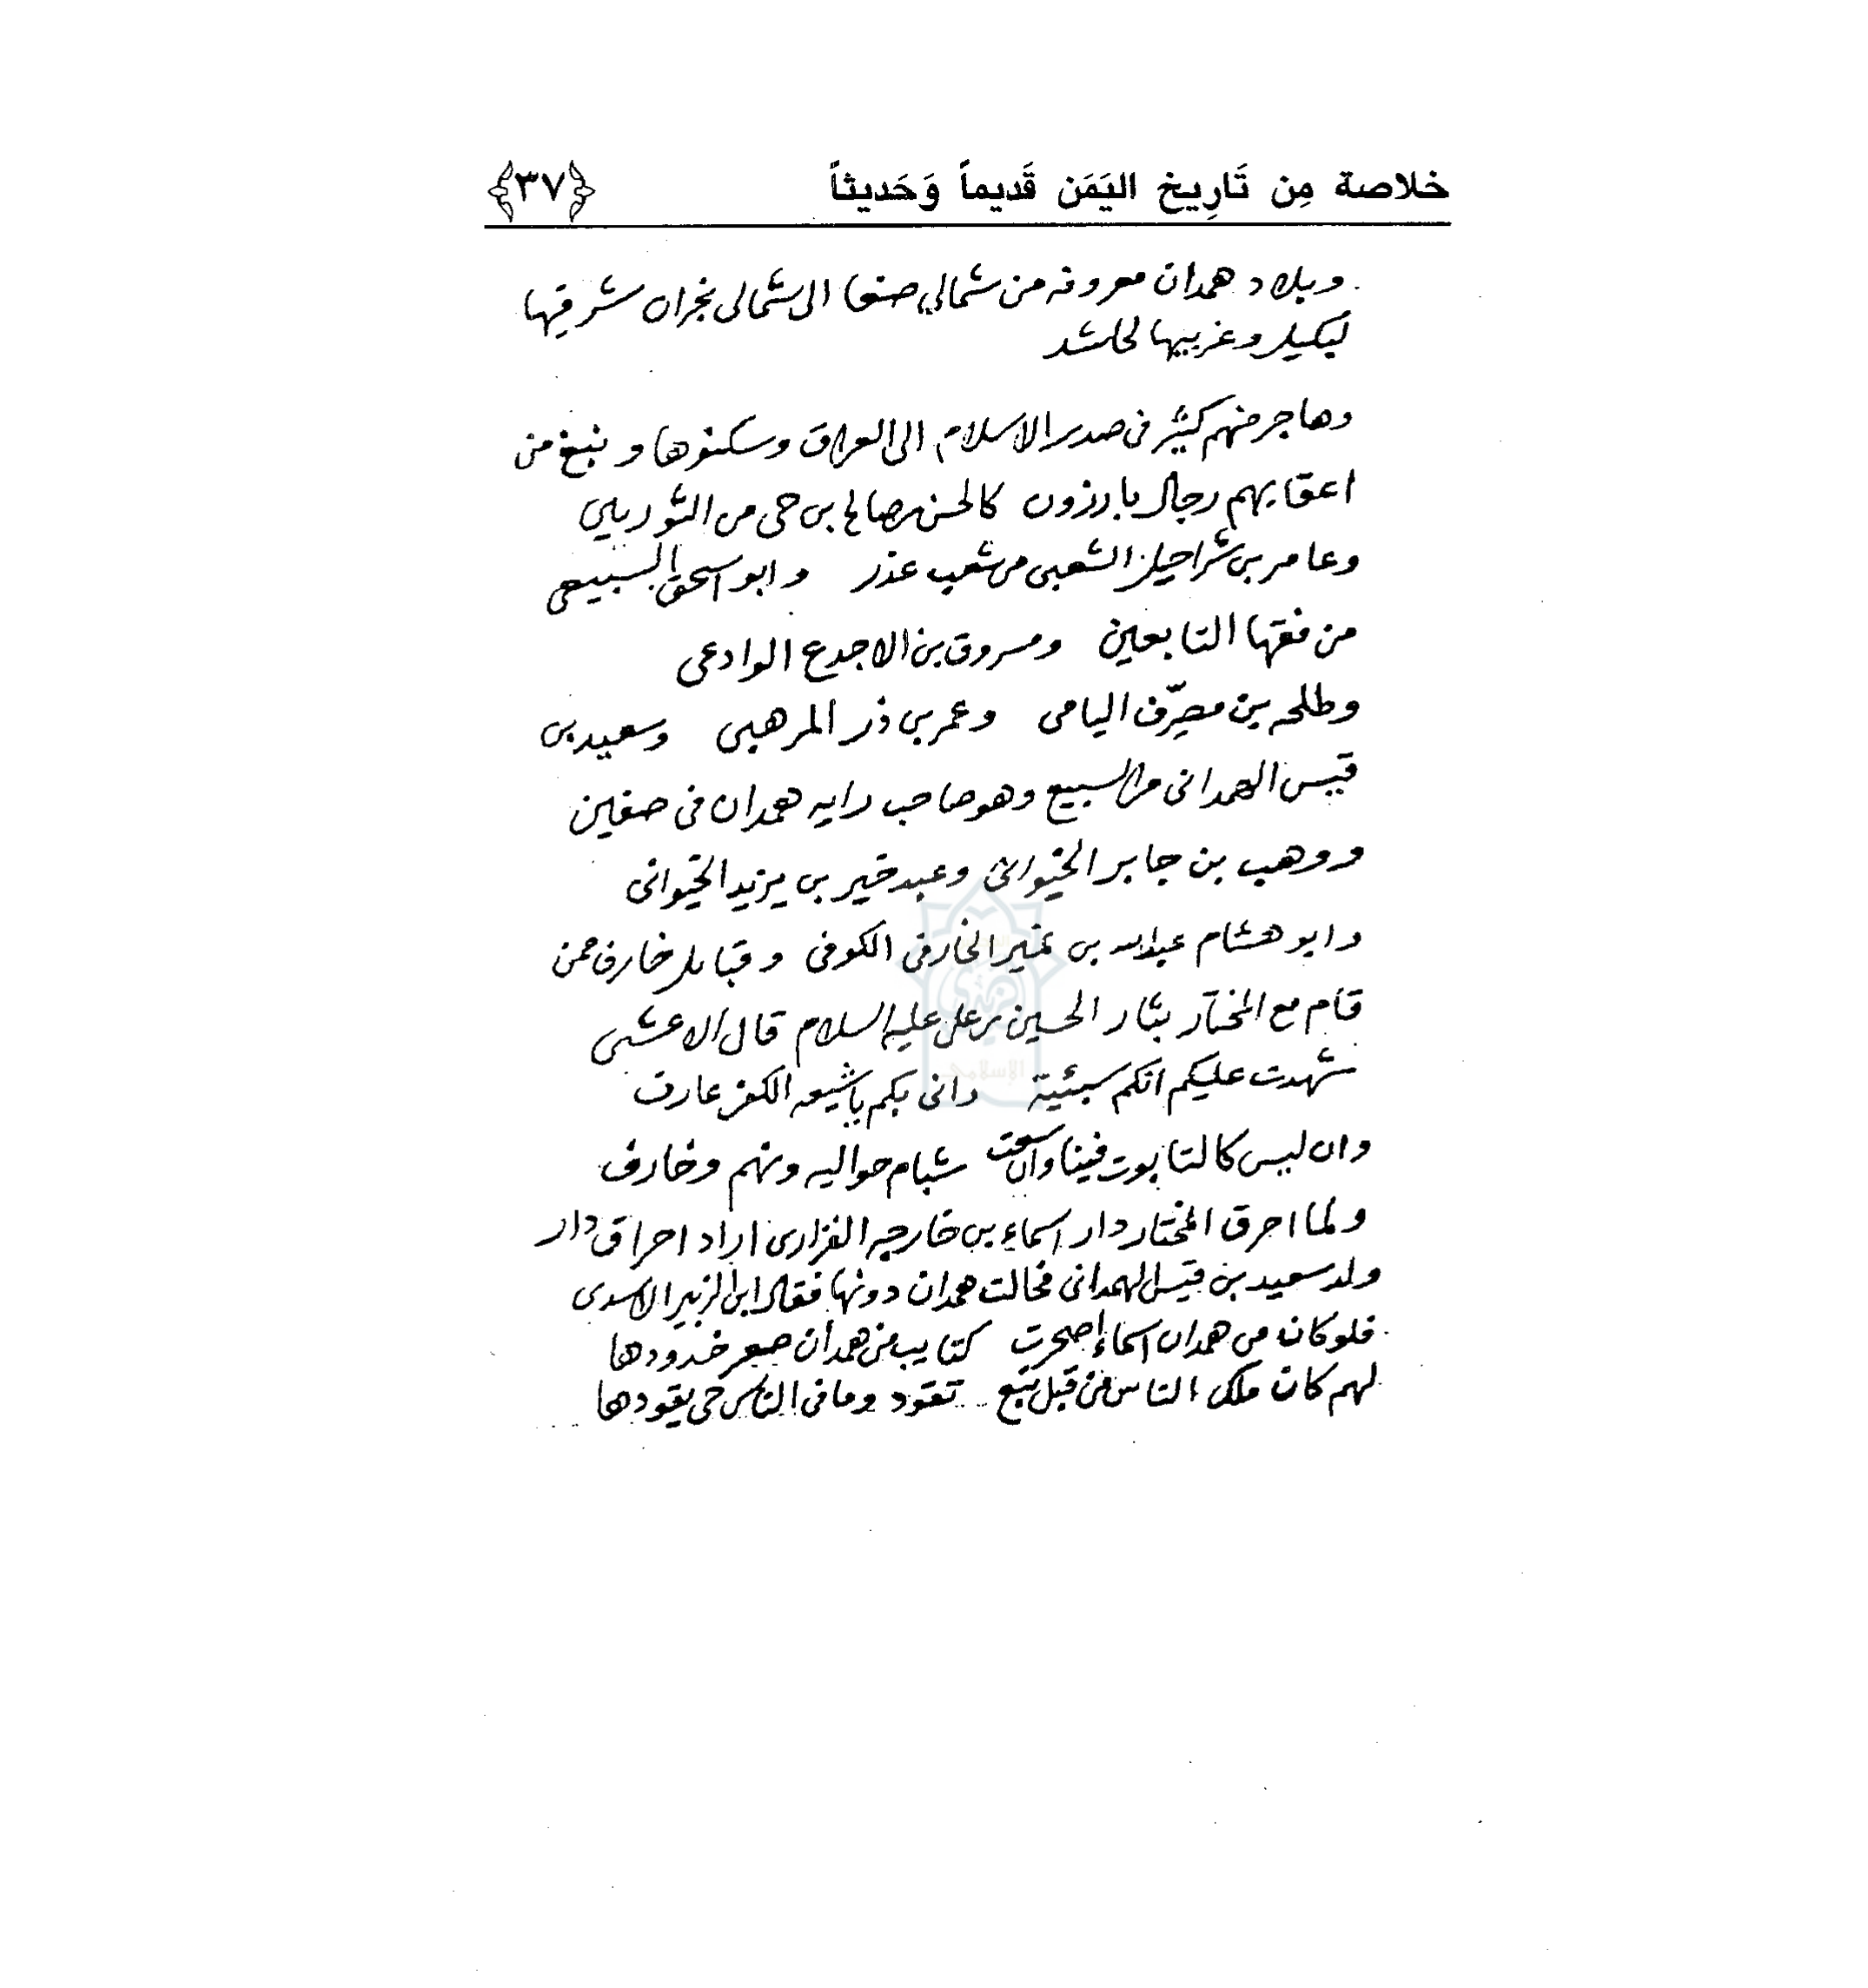 خلاصة مِن تَارِيخ اليَمَن قَديماً وَحَديثاً ﴿٣٧﴾
وبلاد همدان معروفه من شمالي صنعا الى شمالى نجران شرقيها
لبكيل وغربيها لحاشد
وهاجر منهم كثير فى صدر الاسلام الى العراق وسكنوها ونبغ من
اعقابهم رجال بارزون كالحسن بن صالح بن حى من الثوريين
وعامر بن شراحيل الشعبى من شعب عذر وابو اسحق السبيعى
من فقها التابعين ومسروق بن الاجدع الوادعى
وطلحه بن مصرّف اليامى وعمر بن ذر المرهبى وسعيد بن
قيس الهمدانى من السبيع وهو صاحب رايه همدان فى صفين
ووهب بن جابر الخيوانى وعبد خير بن يزيد الخيوانى
وابو هشام عبدالله بن نمير الخارفى الكوفى وقبايل خارف ممن
قام مع المختار بثار الحسين بن على عليه السلام قال الاعشى
شهدت عليكم انكم سبئية وانى بكم يا شيعه الكفر عارف
وان ليس كالتابوت فينا وان سعت شبام حواليه ونهم وخارف
ولما احرق المختار دار اسماء بن خارجه الفزارى اراد احراق دار
ولد سعيد بن قيس الهمدانى فحالت همدان دونها فقال ابن الزبير الاسدى
فلو كان من همدان اسماء اصحرت كتايب من همدان صعر خدودها
لهم كان ملك الناس من قبل تبع تقود وما فى الناس حى يقودها
الإسلامي